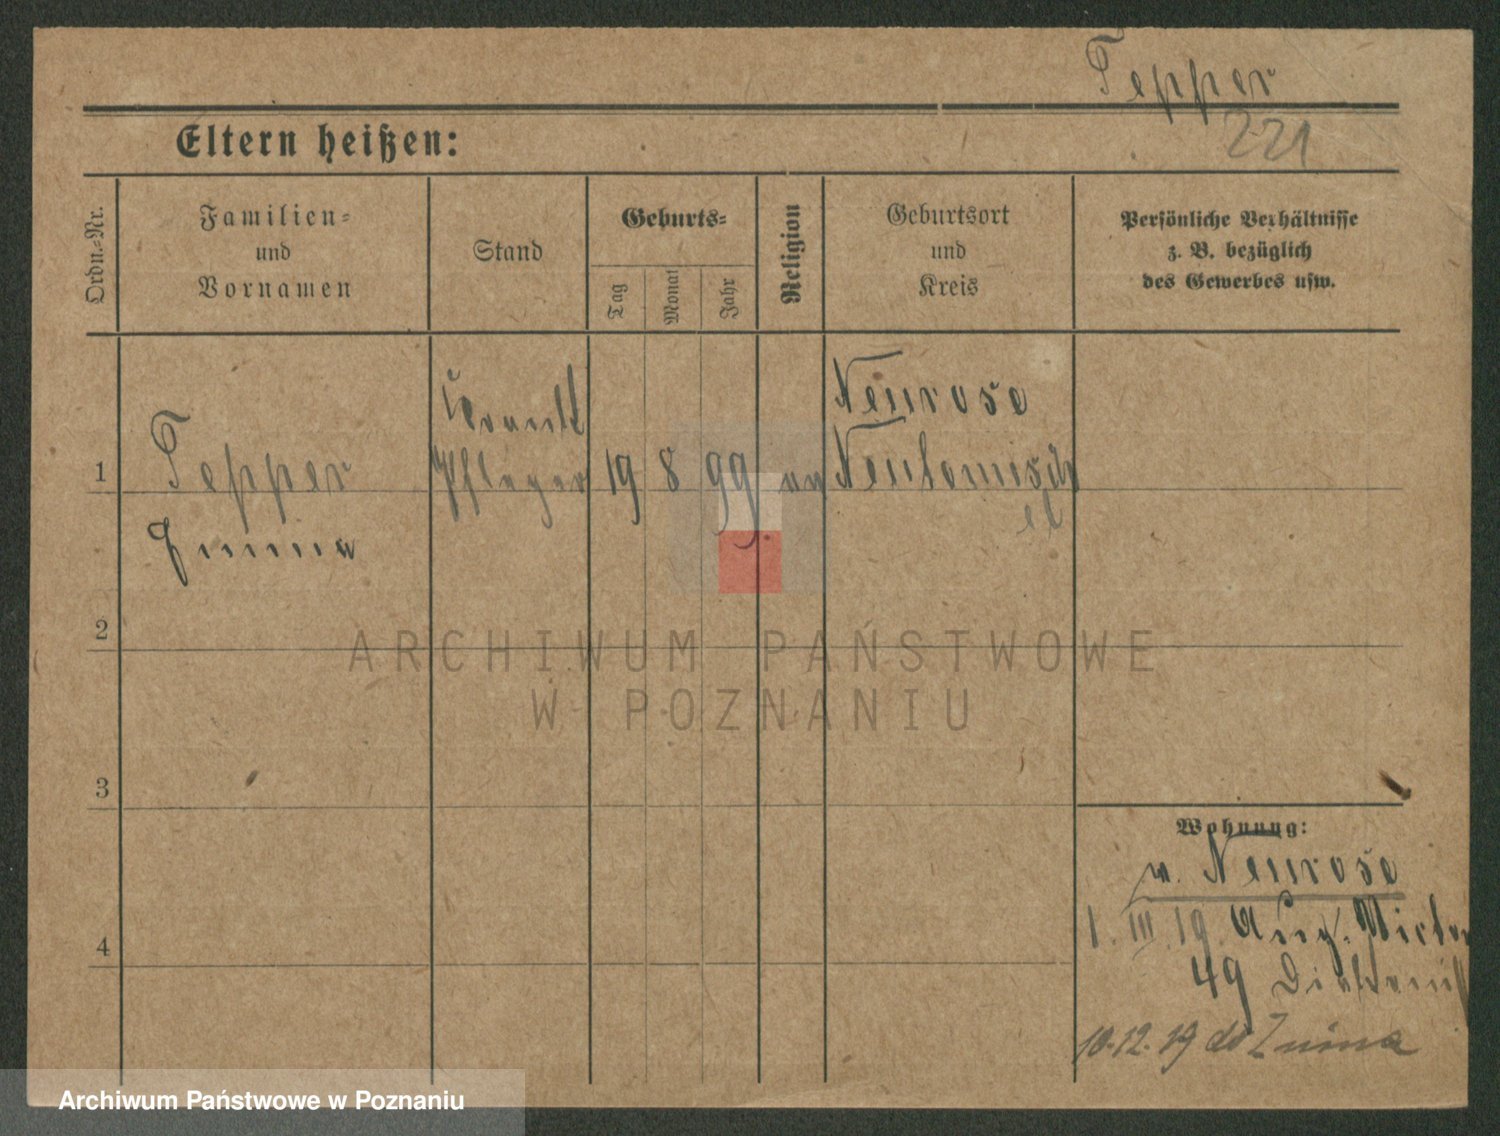 Tepper
221
Eltern heißen:
Ordn.-Nr.
Familien-
und
Vornamen
Stand
Geburts-
Tag
Monat
Jahr
Religion
Geburtsort
und
Kreis
Persönliche Verhältnisse
z. B. bezüglich
des Gewerbes usw.
1
Tepper
Emma
Krank
Pfleger
19
8
99
Neurose
Neutomisch
el
2
3
4
Wohnung:
w. Neurose
1. III. 19. Aug. Victor
49
10.12.19 do Znina
ARCHIWUM PAŃSTWOWE
W POZNANIU
Archiwum Państwowe w Poznaniu